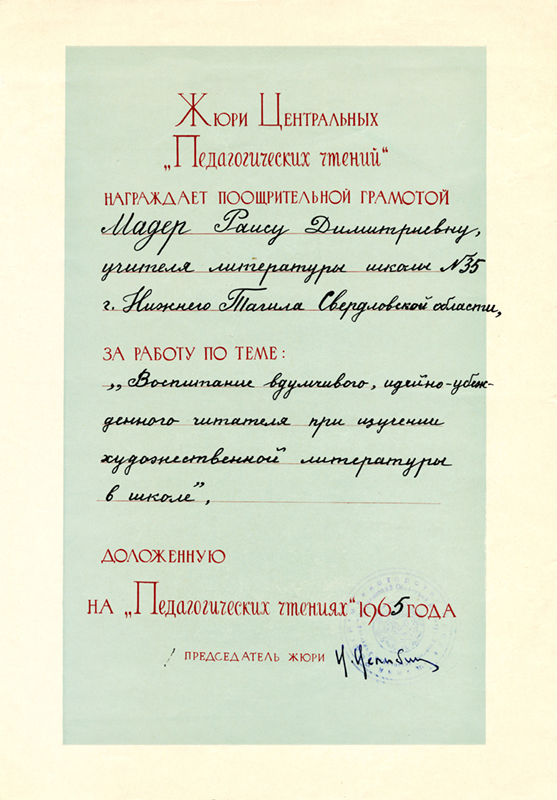 Жюри Центральных
„Педагогических чтений“
награждает поощрительной грамотой
Мадер Раису Димитриевну,
учителя литературы школы №35
г. Нижнего Тагила Свердловской области,
за работу по теме:
„Воспитание вдумчивого, идейно-убеж-
денного читателя при изучении
художественной литературы
в школе”,
доложенную
на „Педагогических чтениях“ 1965 года
председатель жюри